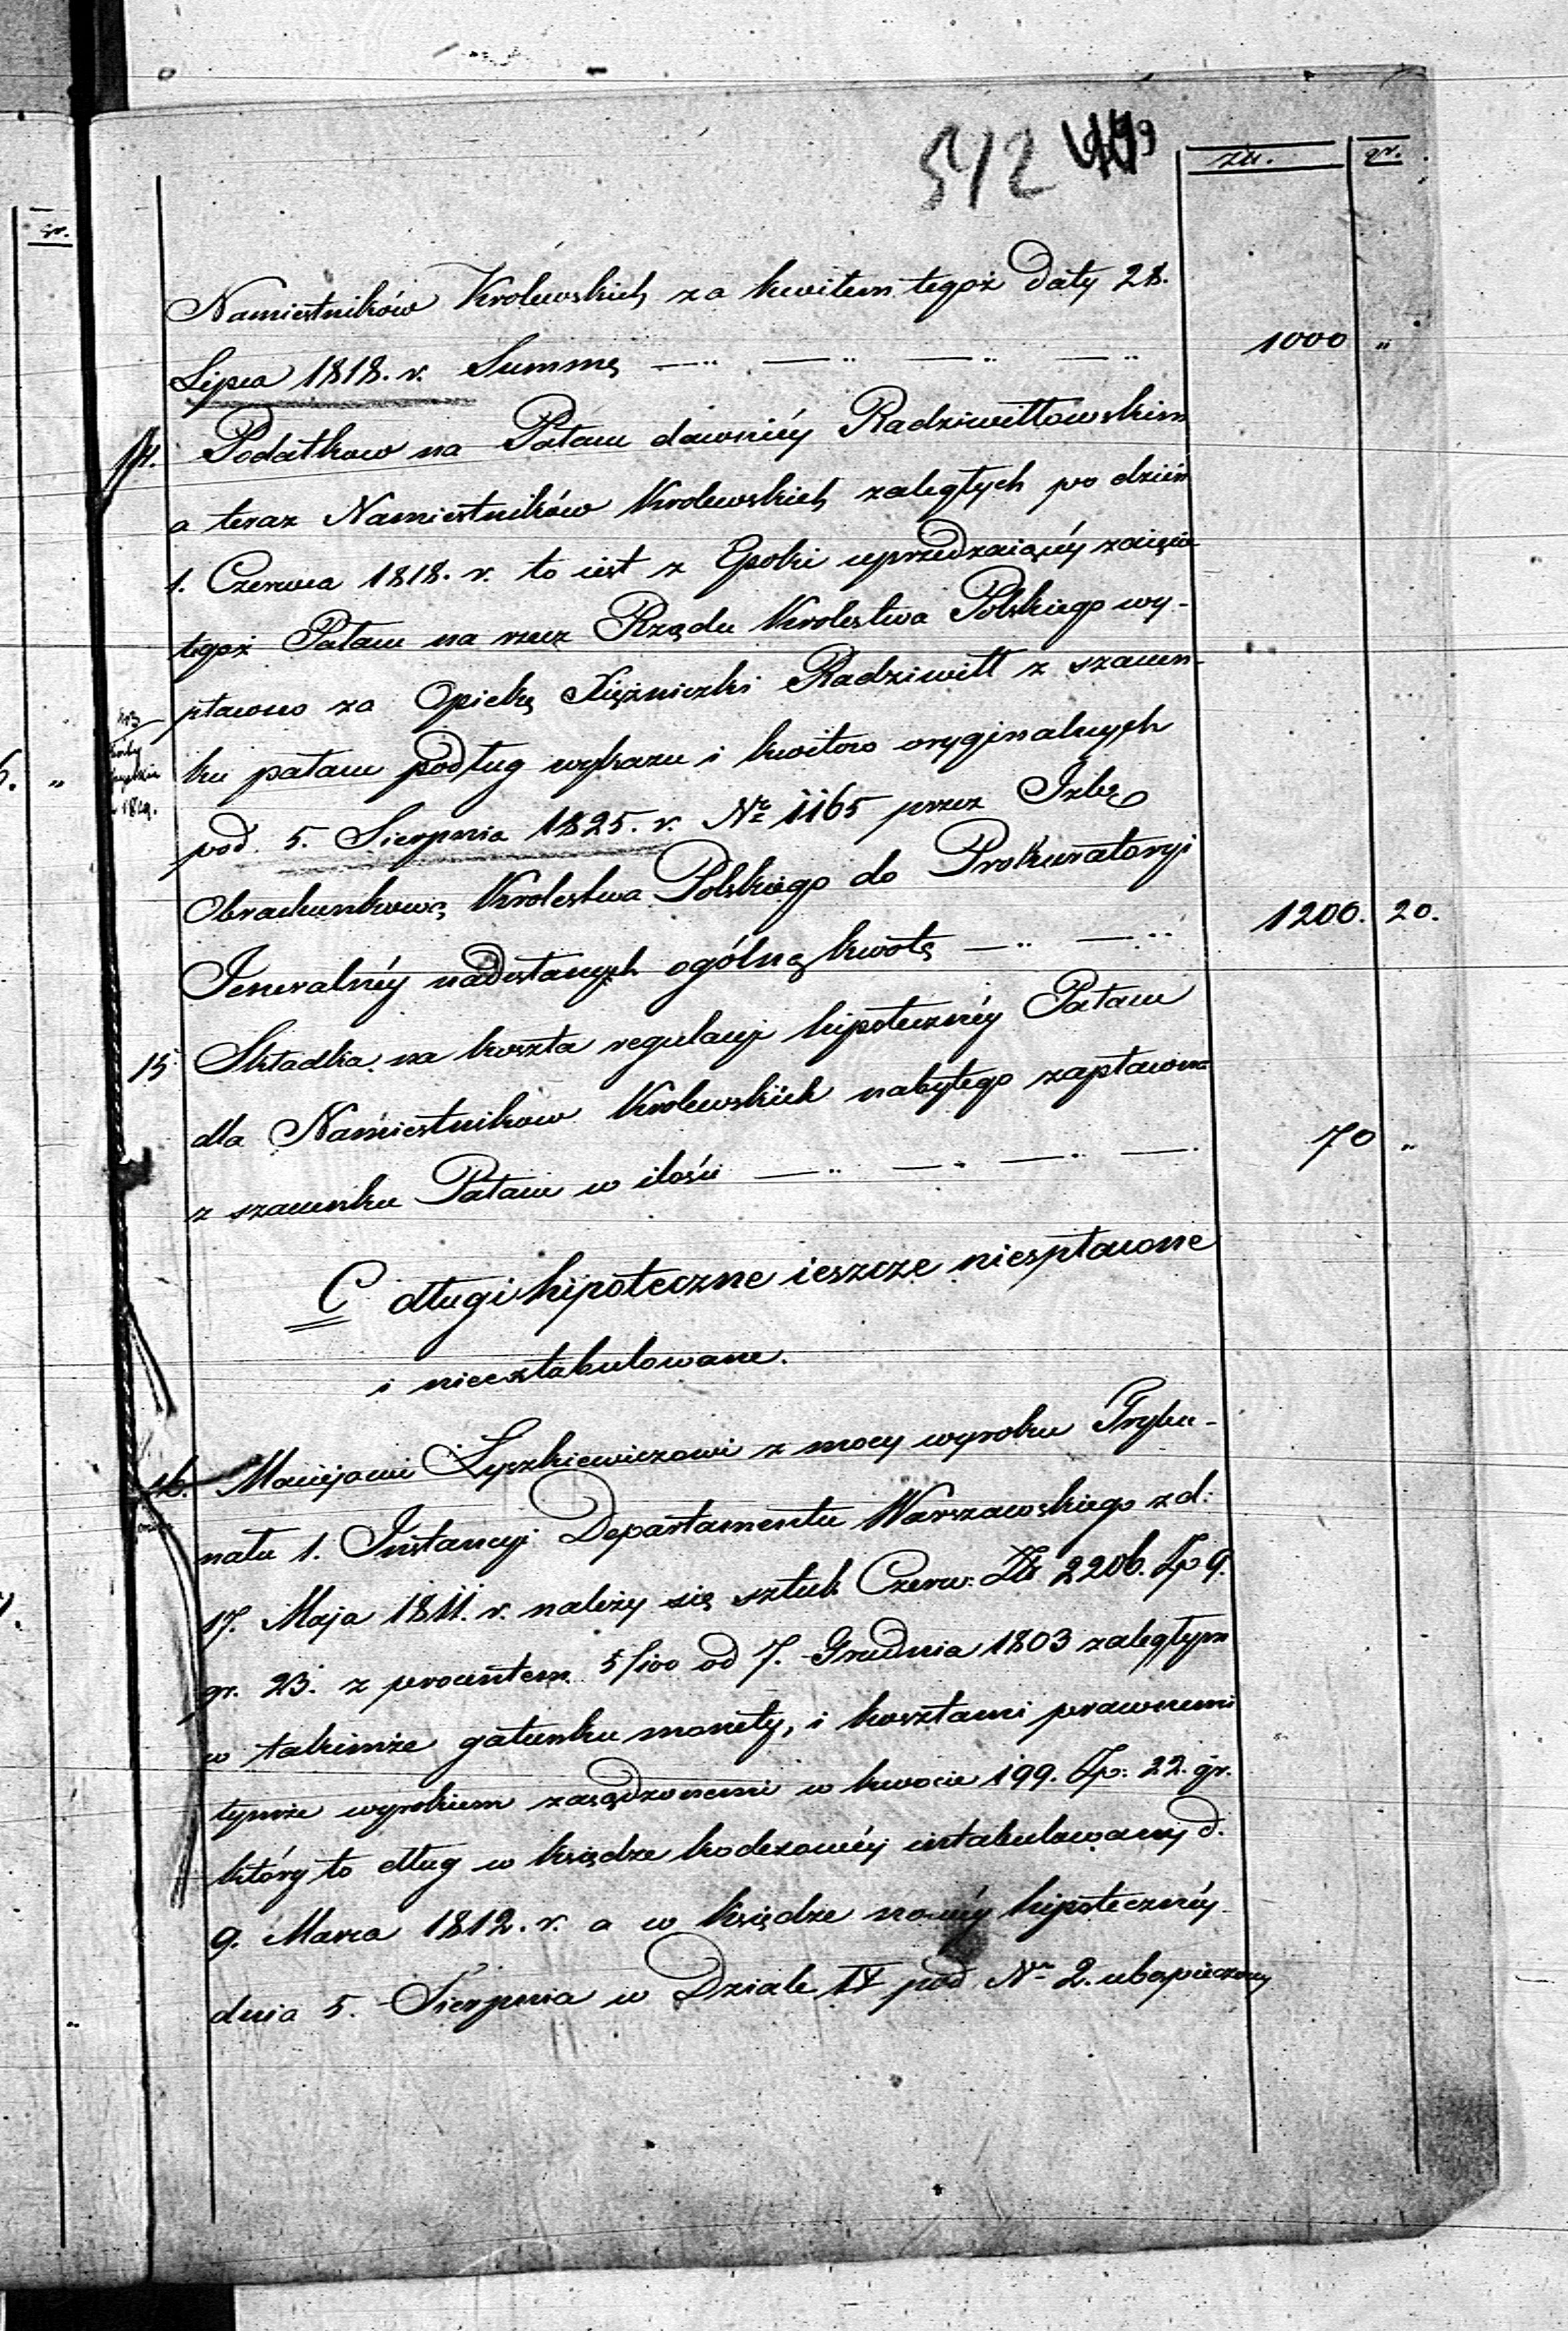 542
zu. gr.
Namiestników Krolewskich za kwitem tegoż daty 28.
Lipca 1818. r. Summę — .. — .. — .. — .. 1000 „
14. Podatkow na Pałacu dawniéy Radziwiłłowskim
a teraz Namiestników Krolewskich zaległych po dzień
1. Czerwca 1818. r. to iest z Epoki uprzedzaiącéy zaięcie
tegoż Pałacu na rzecz Rządu Krolestwa Polskiego wy-
płacono za Opiekę Xiężniczki Radziwiłł z szacun-
ku pałacu podług wykazu i kwitow oryginalnych
pod. 5. Sierpnia 1825. r. Nr 1165 przez Izbę
Obrachunkową Krolestwa Polskiego do Prokuratoryi
Jeneralnéy nadesłanych ogólną kwotę — .. — .. 1200. 20.
15 Składka na koszta regulacyi hipotecznéy Pałacu
dla Namiestnikow Krolewskich nabytego zapłacona
z szacunku Pałacu w ilości — .. — .. — .. — . 70 „
C długi hipoteczne ieszcze niespłacone
i nieextabulowane.
16. Maciejowi Łyszkiewiczowi z mocy wyroku Trybu-
nału 1. Instancyi Departamentu Warszawskiego z d:
17. Maja 1811. r. należy się sztuk Czerw. Zło 2206. Zp 9.
gr. 23. z procentem 5/100 od 7. Grudnia 1803 zaległym
w takimże gatunku monéty, i kosztami prawnemi
tymże wyrokiem zasądzonemi w kwocie 199. Zp. 22. gr.
który to dług w księdze kodexowéy intabulowany d.
9. Marca 1812. r. a w księdze nowéy hipotecznéy
dnia 5. Sierpnia w Dziale IV pod Nr 2. ubespieczony